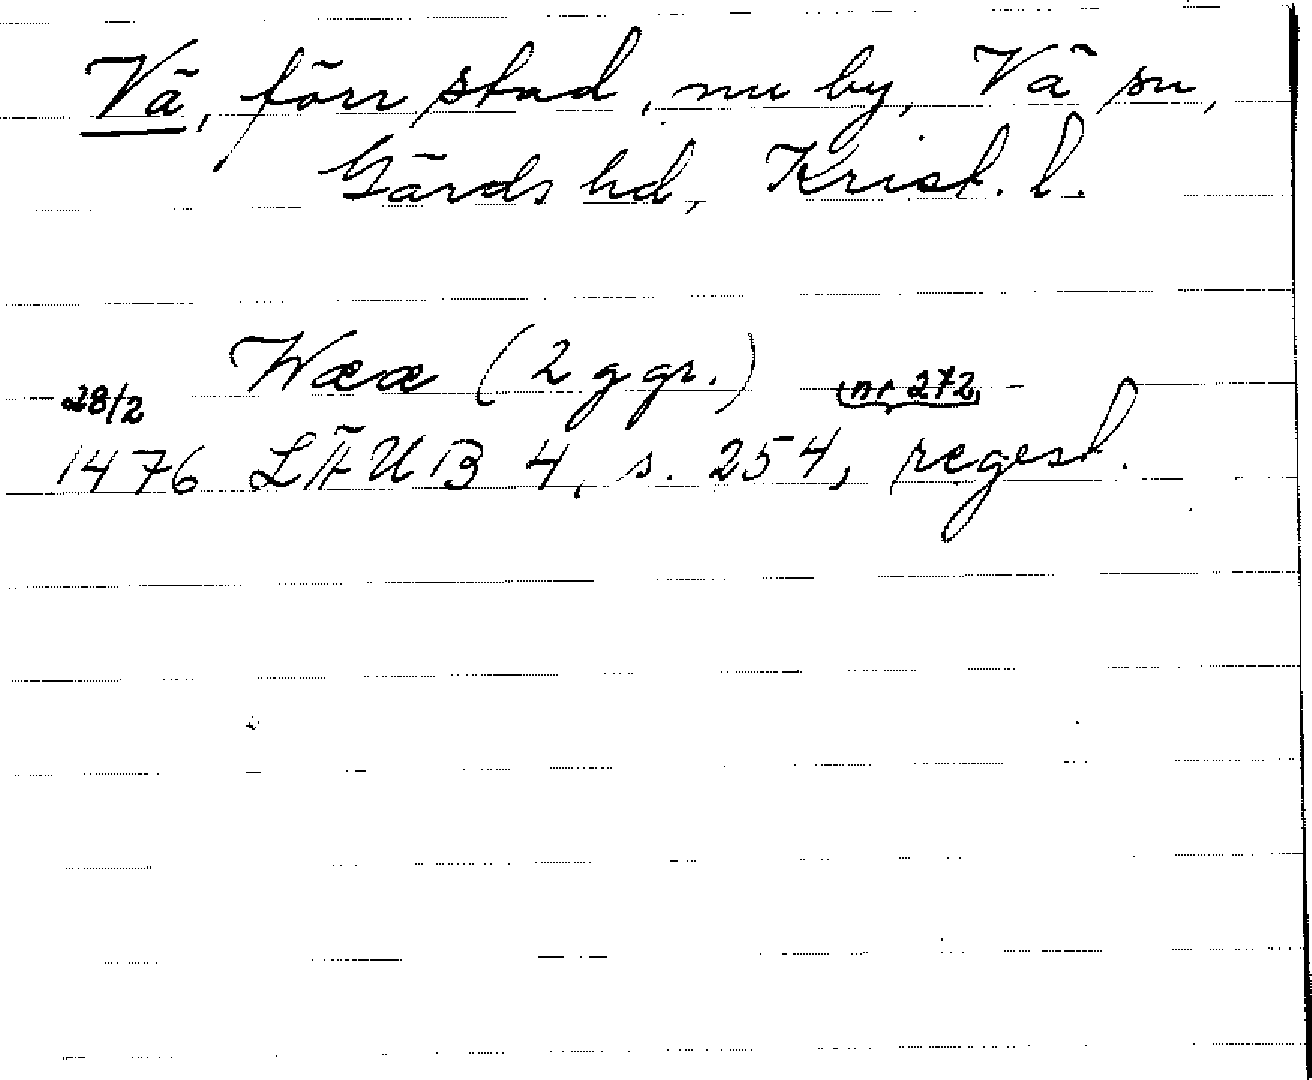 Vä, förr stad, nu by, Vä sn,
Gärds hd, Krist. l.
Wææ (2 ggr.)
28/2 nr 272
1476 LÄUB 4, s. 254, regest.